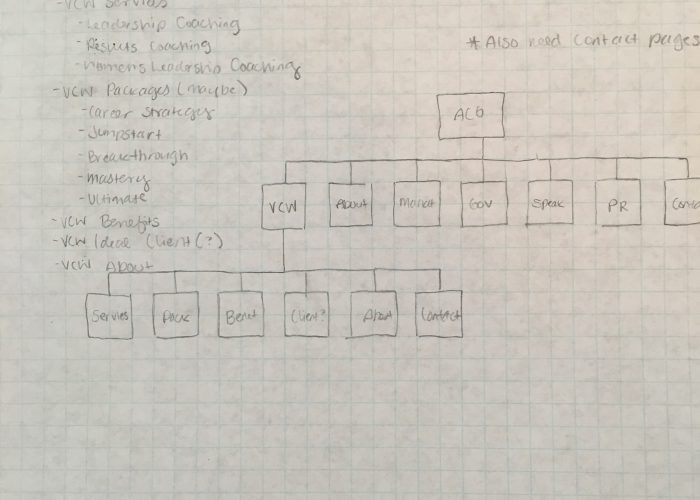 - VCW Servies
- Leadership Coaching
- Results Coaching
- Womens Leadership Coaching
- VCW Packages (maybe)
- Career Strategies
- Jumpstart
- Breakthrough
- Mastery
- Ultimate
- VCW Benefits
- VCW Ideal Client (?)
- VCW About
* Also need contact pages
ACG
VCW About Gov Speak PR Conta
Servies Pack Benet Client? About Contact